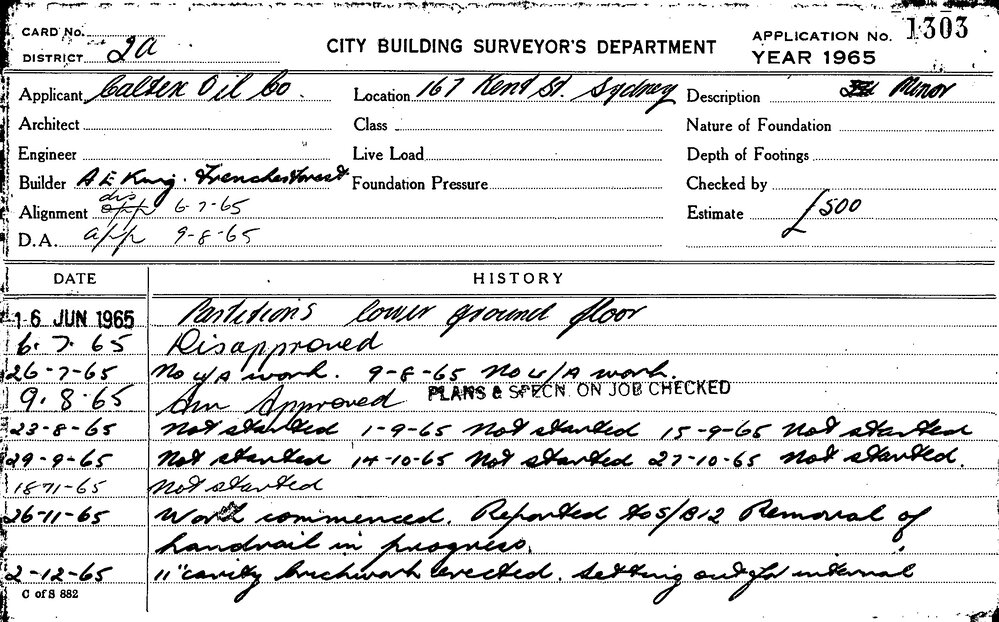 CARD No.
DISTRICT 2a
CITY BUILDING SURVEYOR'S DEPARTMENT
APPLICATION No. 1303
YEAR 1965
Applicant Caltex Oil Co.
Location 167 Kent St. Sydney
Description Minor
Architect
Class
Nature of Foundation
Engineer
Live Load
Depth of Footings
Builder A E King. Frenchs Forest
Foundation Pressure
Checked by
Alignment dis app 6-7-65
Estimate £500
D.A. app 9-8-65
DATE HISTORY
16 JUN 1965 Partitions lower ground floor
6. 7. 65 Disapproved
26-7-65 No u/A work. 9-8-65 No u/A work.
9. 8. 65 Approved PLANS & SPECN. ON JOB CHECKED
23-8-65 Not started 1-9-65 Not started 15-9-65 Not started
29-9-65 Not started 14-10-65 Not started 27-10-65 Not started.
18-11-65 Not started
26-11-65 Work commenced. Reported to S/B12 Removal of
handrail in progress.
2-12-65 11" cavity brickwork erected. Setting out for internal
C of S 882